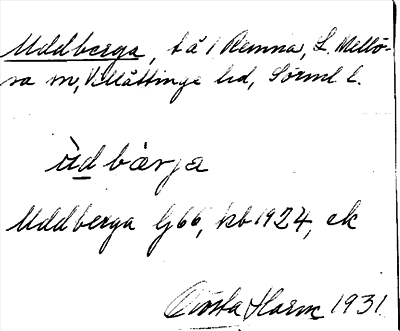 Uddberga, två / Remna, L. Mellö-
sa sn, Villåttinge hd, Sörml. l.
ùd bàrja
Uddberga G66, kb 1924, ek
Gösta Harm 1931